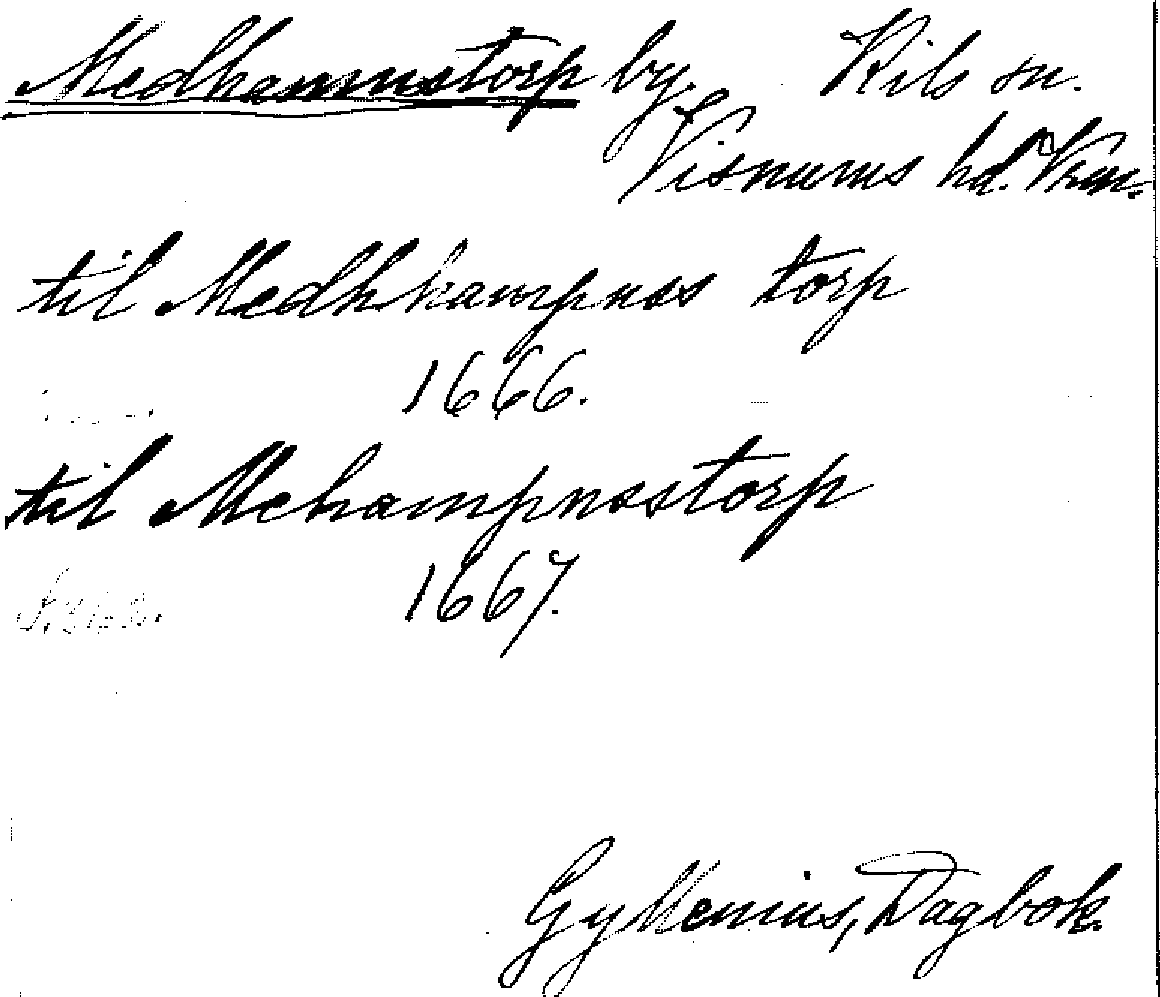 Medhamnstorp by. Kils sn.
Visnums hd. Vrm.
til Medhkampnas torp
1666.
til Mehampnastorp
1667.
Gyllenius, Dagbok.